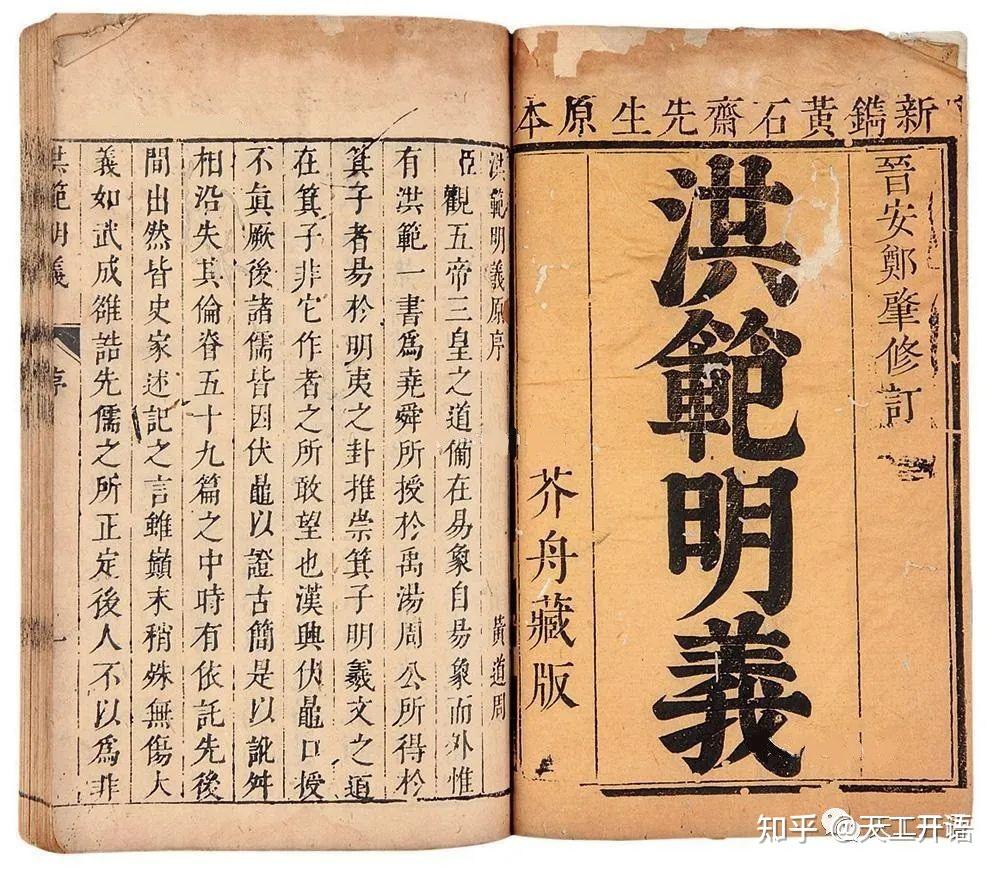 新鐫黃石齋先生原本
晉安鄭肇修訂
洪範明義
芥舟藏版
洪範明義原序
黃道周
臣觀五帝三皇之道備在易象自易象而外惟
有洪範一書為堯舜所授於禹湯周公所得於
箕子者易於明夷之卦推崇箕子明羲文之道
在箕子非它作者之所敢望也漢興伏鼂口授
不真厥後諸儒皆因伏鼂以證古簡是以訛舛
相沿失其倫脊五十九篇之中時有依託先後
間出然皆史家述記之言雖巔末稍殊無傷大
義如武成雒誥先儒之所正定後人不以為非
洪範明義
序
一
知乎 @天工开语